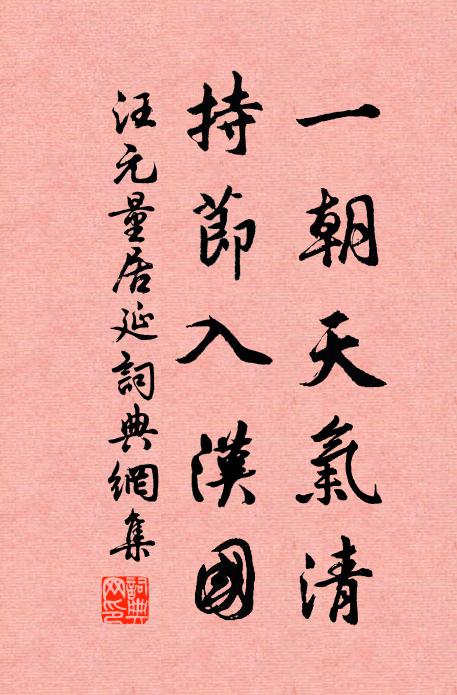 一朝天氣清
持節入漢國
汪元量居延詞典網集
詞典網印